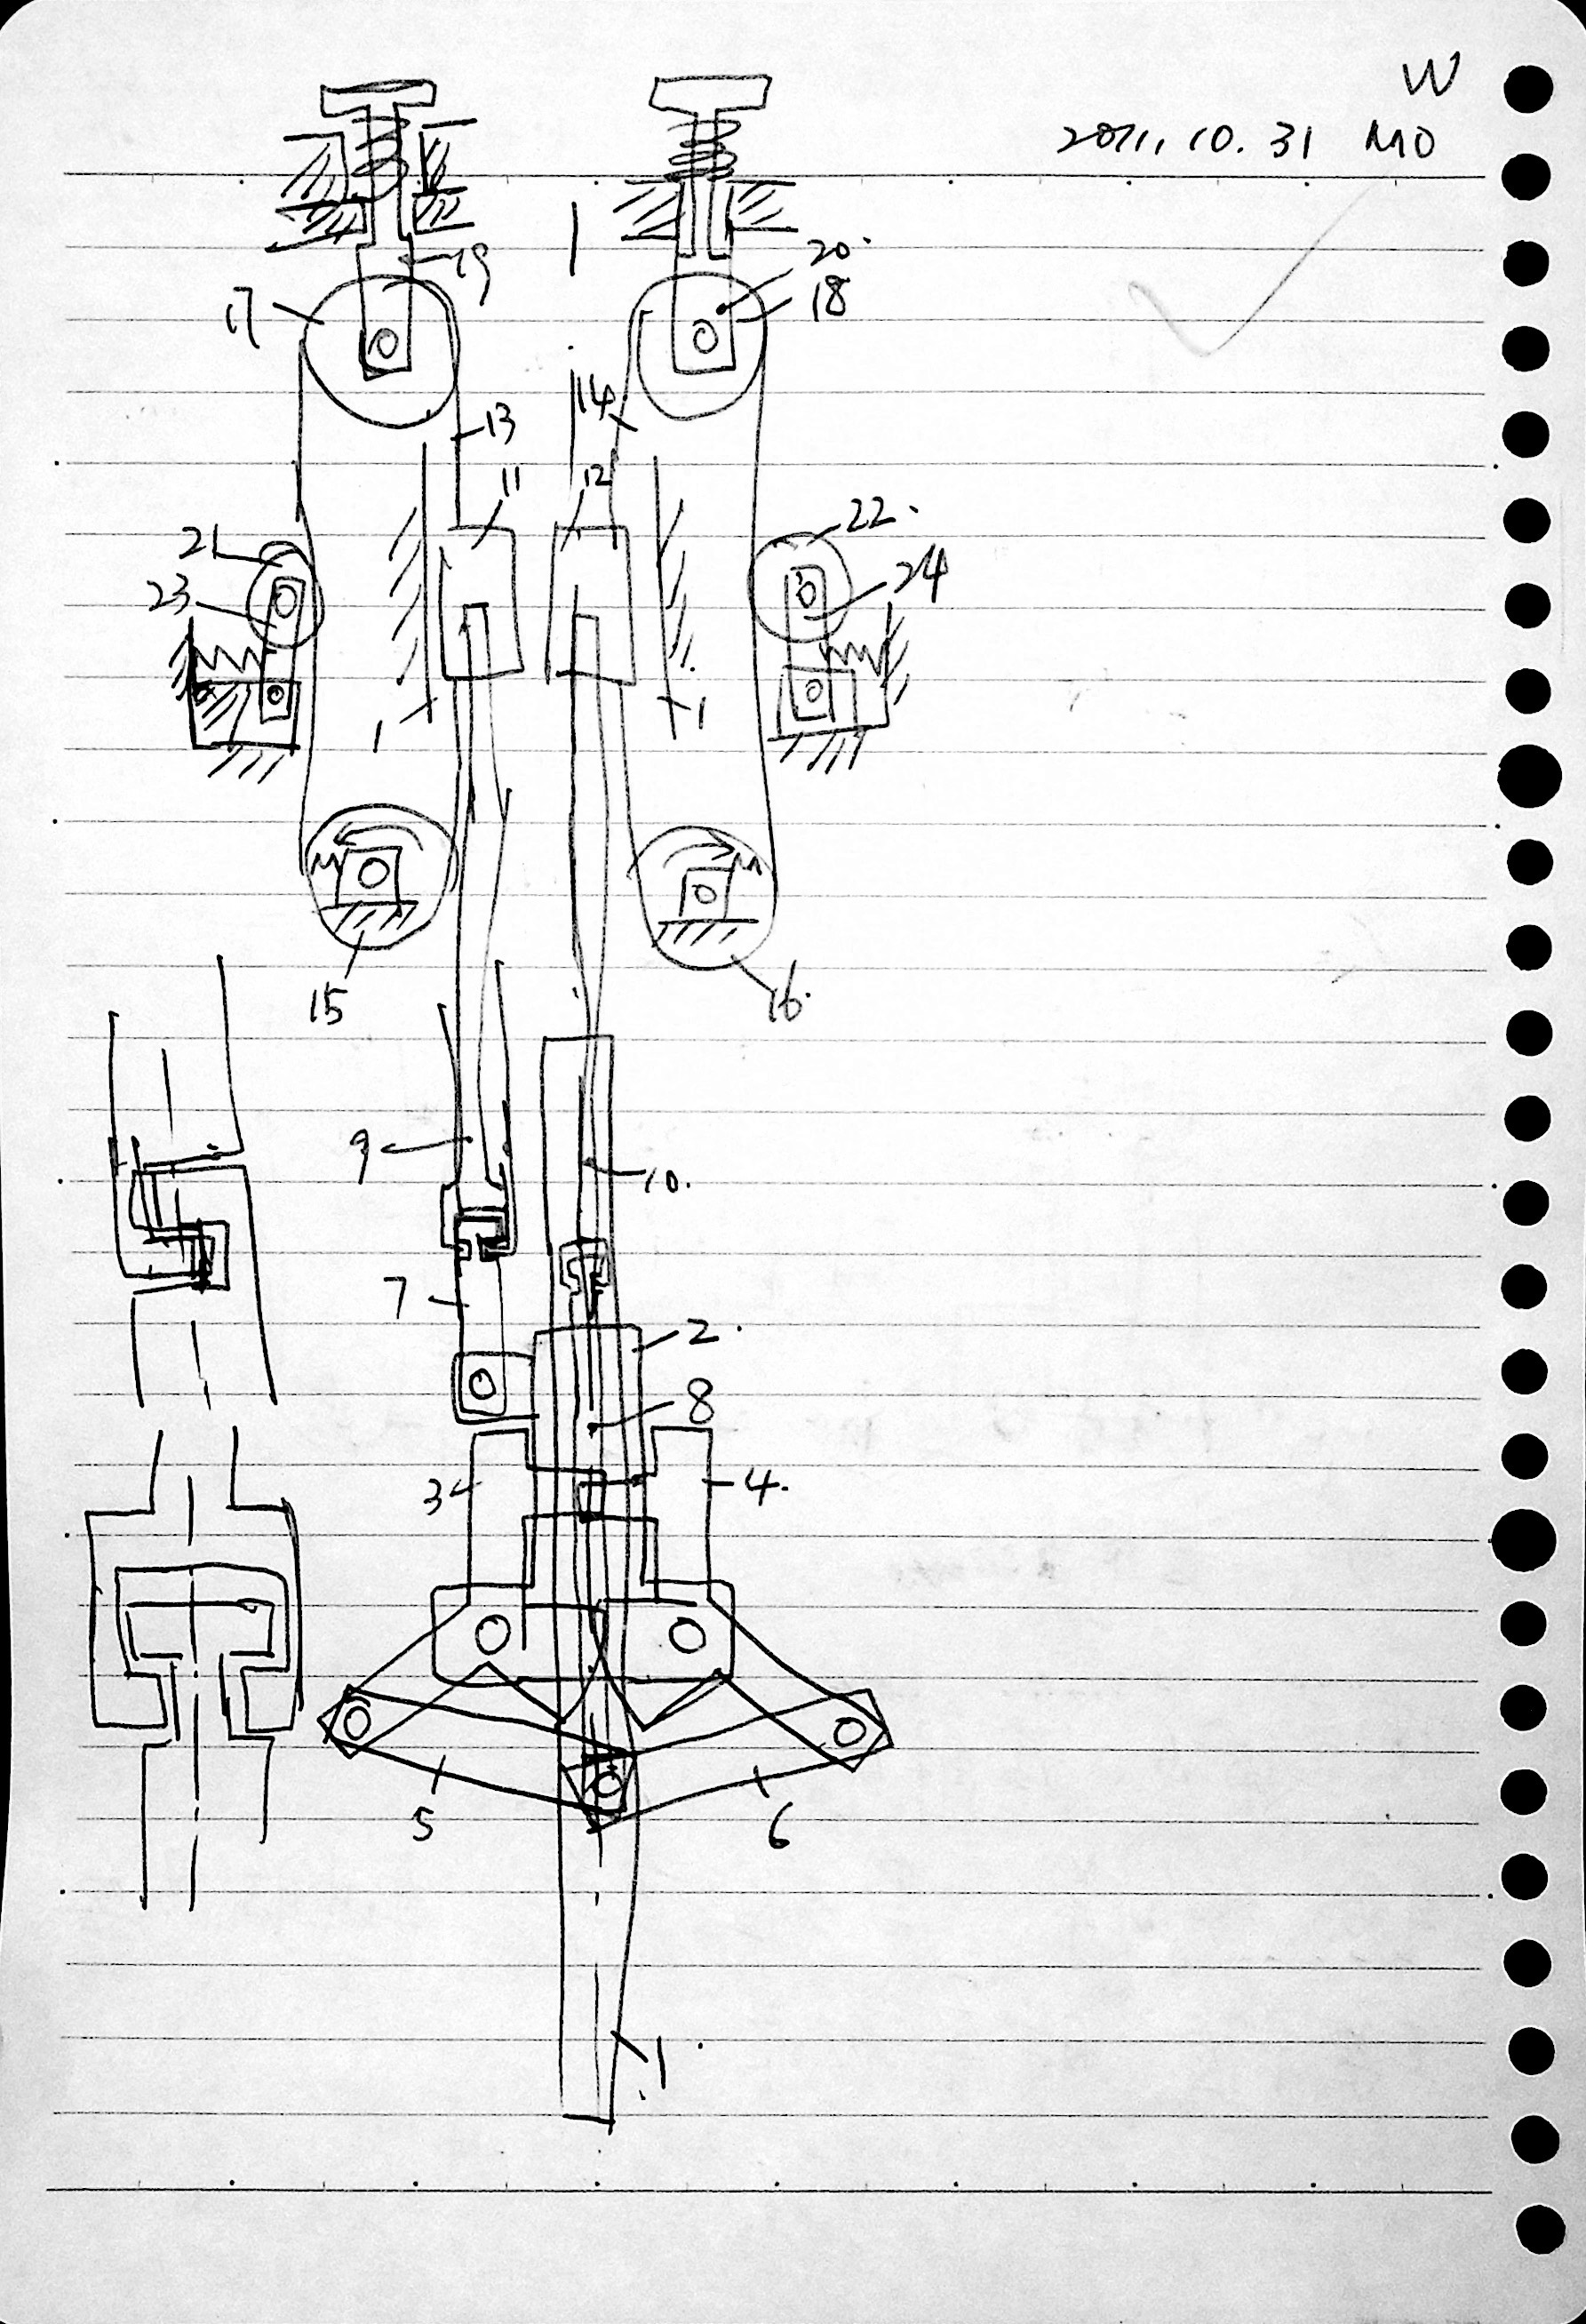 W
2011, 10. 31 MO
19
20.
17
18
14
13
11
12
22.
21
24
23
1
1
15
16.
9
10.
7
2.
8
3
4.
5
6
1.